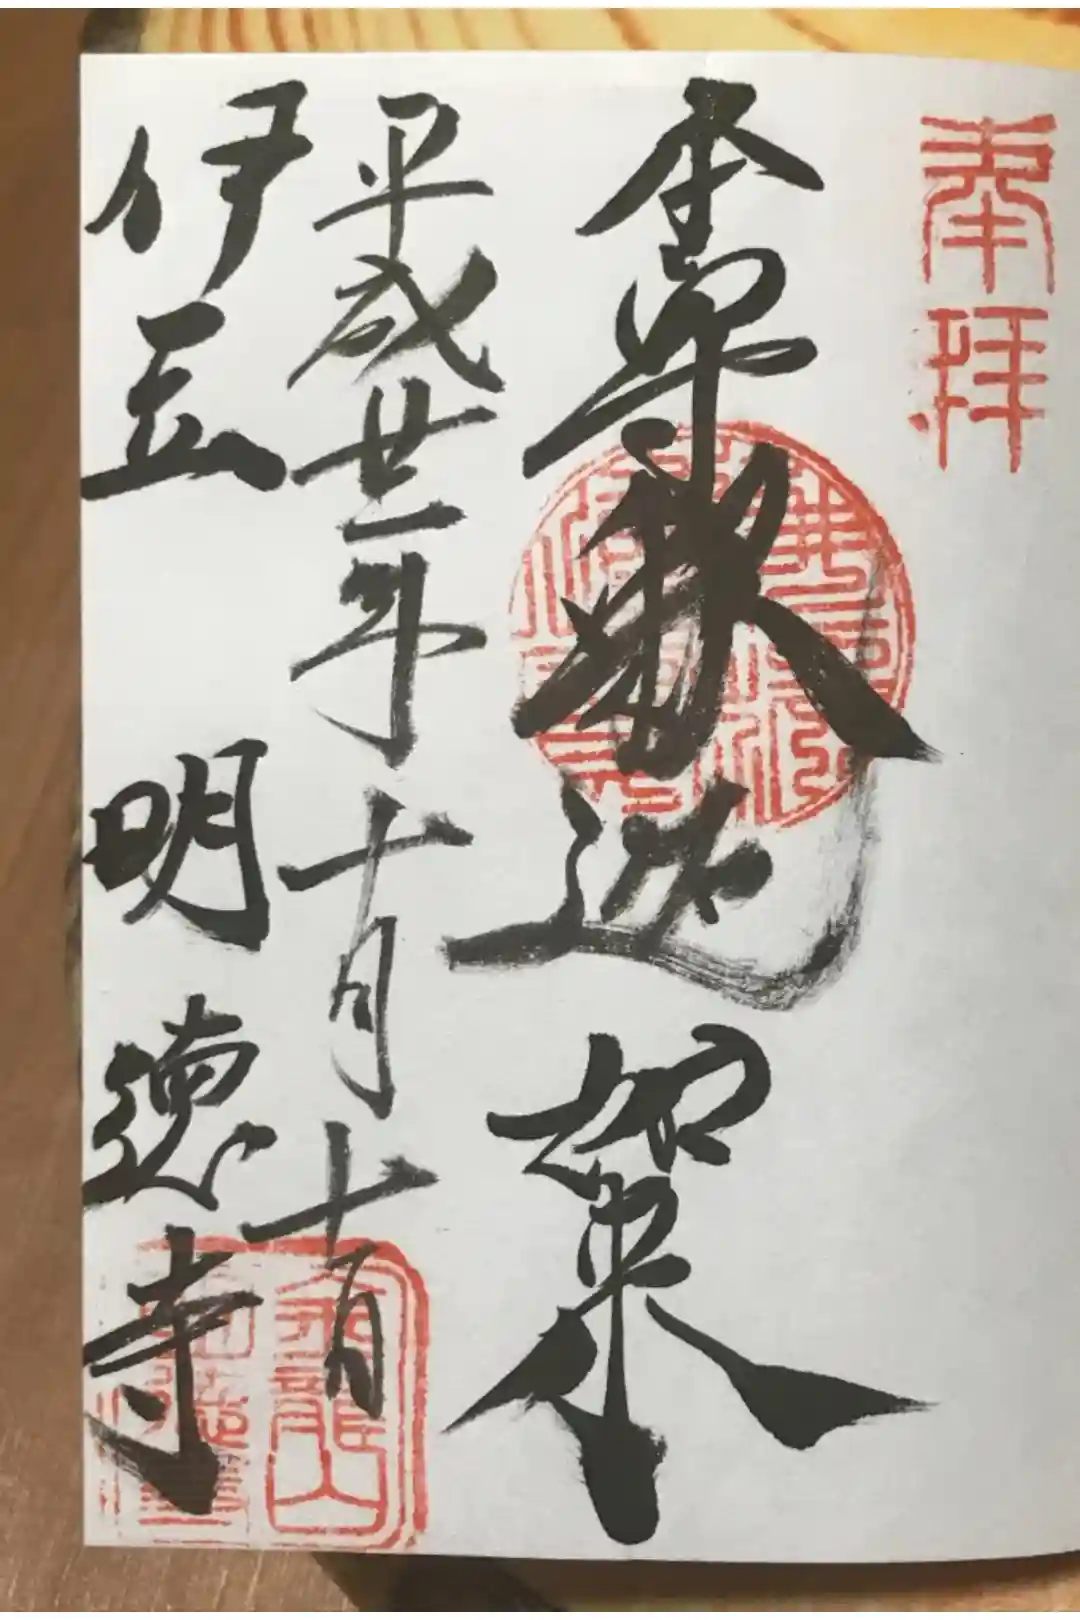 奉拝
本尊 釈迦如来
平成廿一年十月十一日
伊豆 明徳寺
金龍山